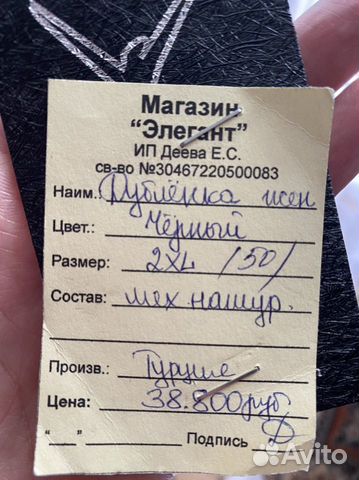 Магазин
"Элегант"
ИП Деева Е.С.
св-во №30467220500083
Наим.: Дублёнка жен
Цвет.: Чёрный
Размер: 2XL /50/
Состав: мех натур.
Произв.: Турция
Цена: 38.800 руб
"__" Подпись
Avito